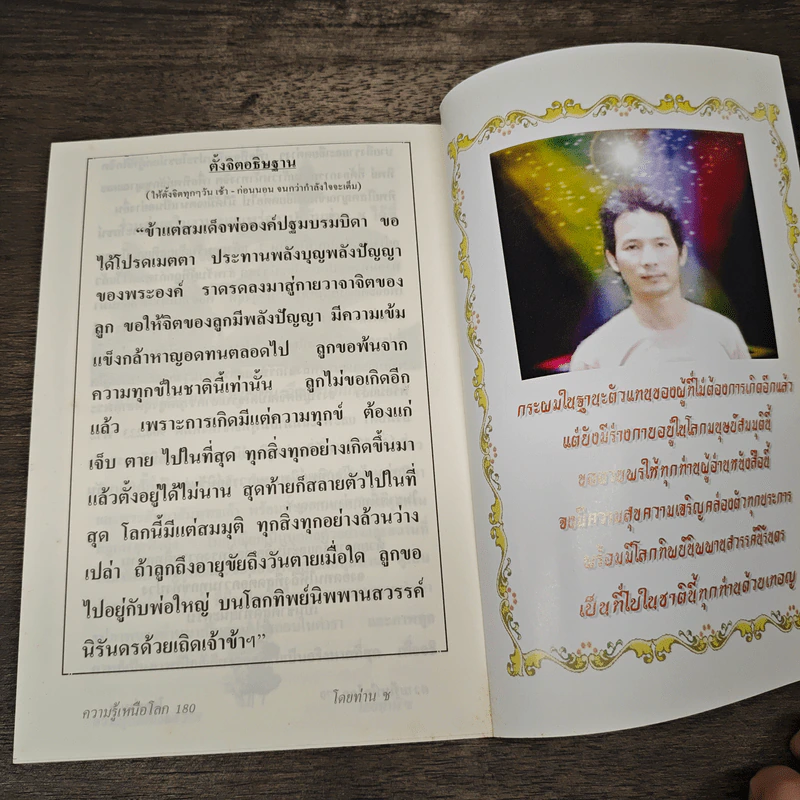 ตั้งจิตอธิษฐาน
(ให้ตั้งจิตทุกๆวัน เช้า - ก่อนนอน จนกว่ากำลังใจจะเต็ม)
“ข้าแต่สมเด็จพ่อองค์ปฐมบรมบิดา ขอ
ได้โปรดเมตตา ประทานพลังบุญพลังปัญญา
ของพระองค์ ราดรดลงมาสู่กายวาจาจิตของ
ลูก ขอให้จิตของลูกมีพลังปัญญา มีความเข้ม
แข็งกล้าหาญอดทนตลอดไป ลูกขอพ้นจาก
ความทุกข์ในชาตินี้เท่านั้น ลูกไม่ขอเกิดอีก
แล้ว เพราะการเกิดมีแต่ความทุกข์ ต้องแก่
เจ็บ ตาย ไปในที่สุด ทุกสิ่งทุกอย่างเกิดขึ้นมา
แล้วตั้งอยู่ได้ไม่นาน สุดท้ายก็สลายตัวไปในที่
สุด โลกนี้มีแต่สมมุติ ทุกสิ่งทุกอย่างล้วนว่าง
เปล่า ถ้าลูกถึงอายุขัยถึงวันตายเมื่อใด ลูกขอ
ไปอยู่กับพ่อใหญ่ บนโลกทิพย์นิพพานสวรรค์
นิรันดรด้วยเถิดเจ้าข้าฯ”
ความรู้เหนือโลก 180
โดยท่าน ซ
กระผมในฐานะตัวแทนของผู้ที่ไม่ต้องการเกิดอีกแล้ว
แต่ยังมีร่างกายอยู่ในโลกมนุษย์สมมุตินี้
ให้ทุกท่านผู้อ่านหนังสือนี้
ความสุขความเจริญคล่องตัวทุกประการ
พร้อมมีโลกทิพย์นิพพานสวรรค์นิรันดร
เป็นที่ไปในชาตินี้ทุกท่านด้วยเทอญ